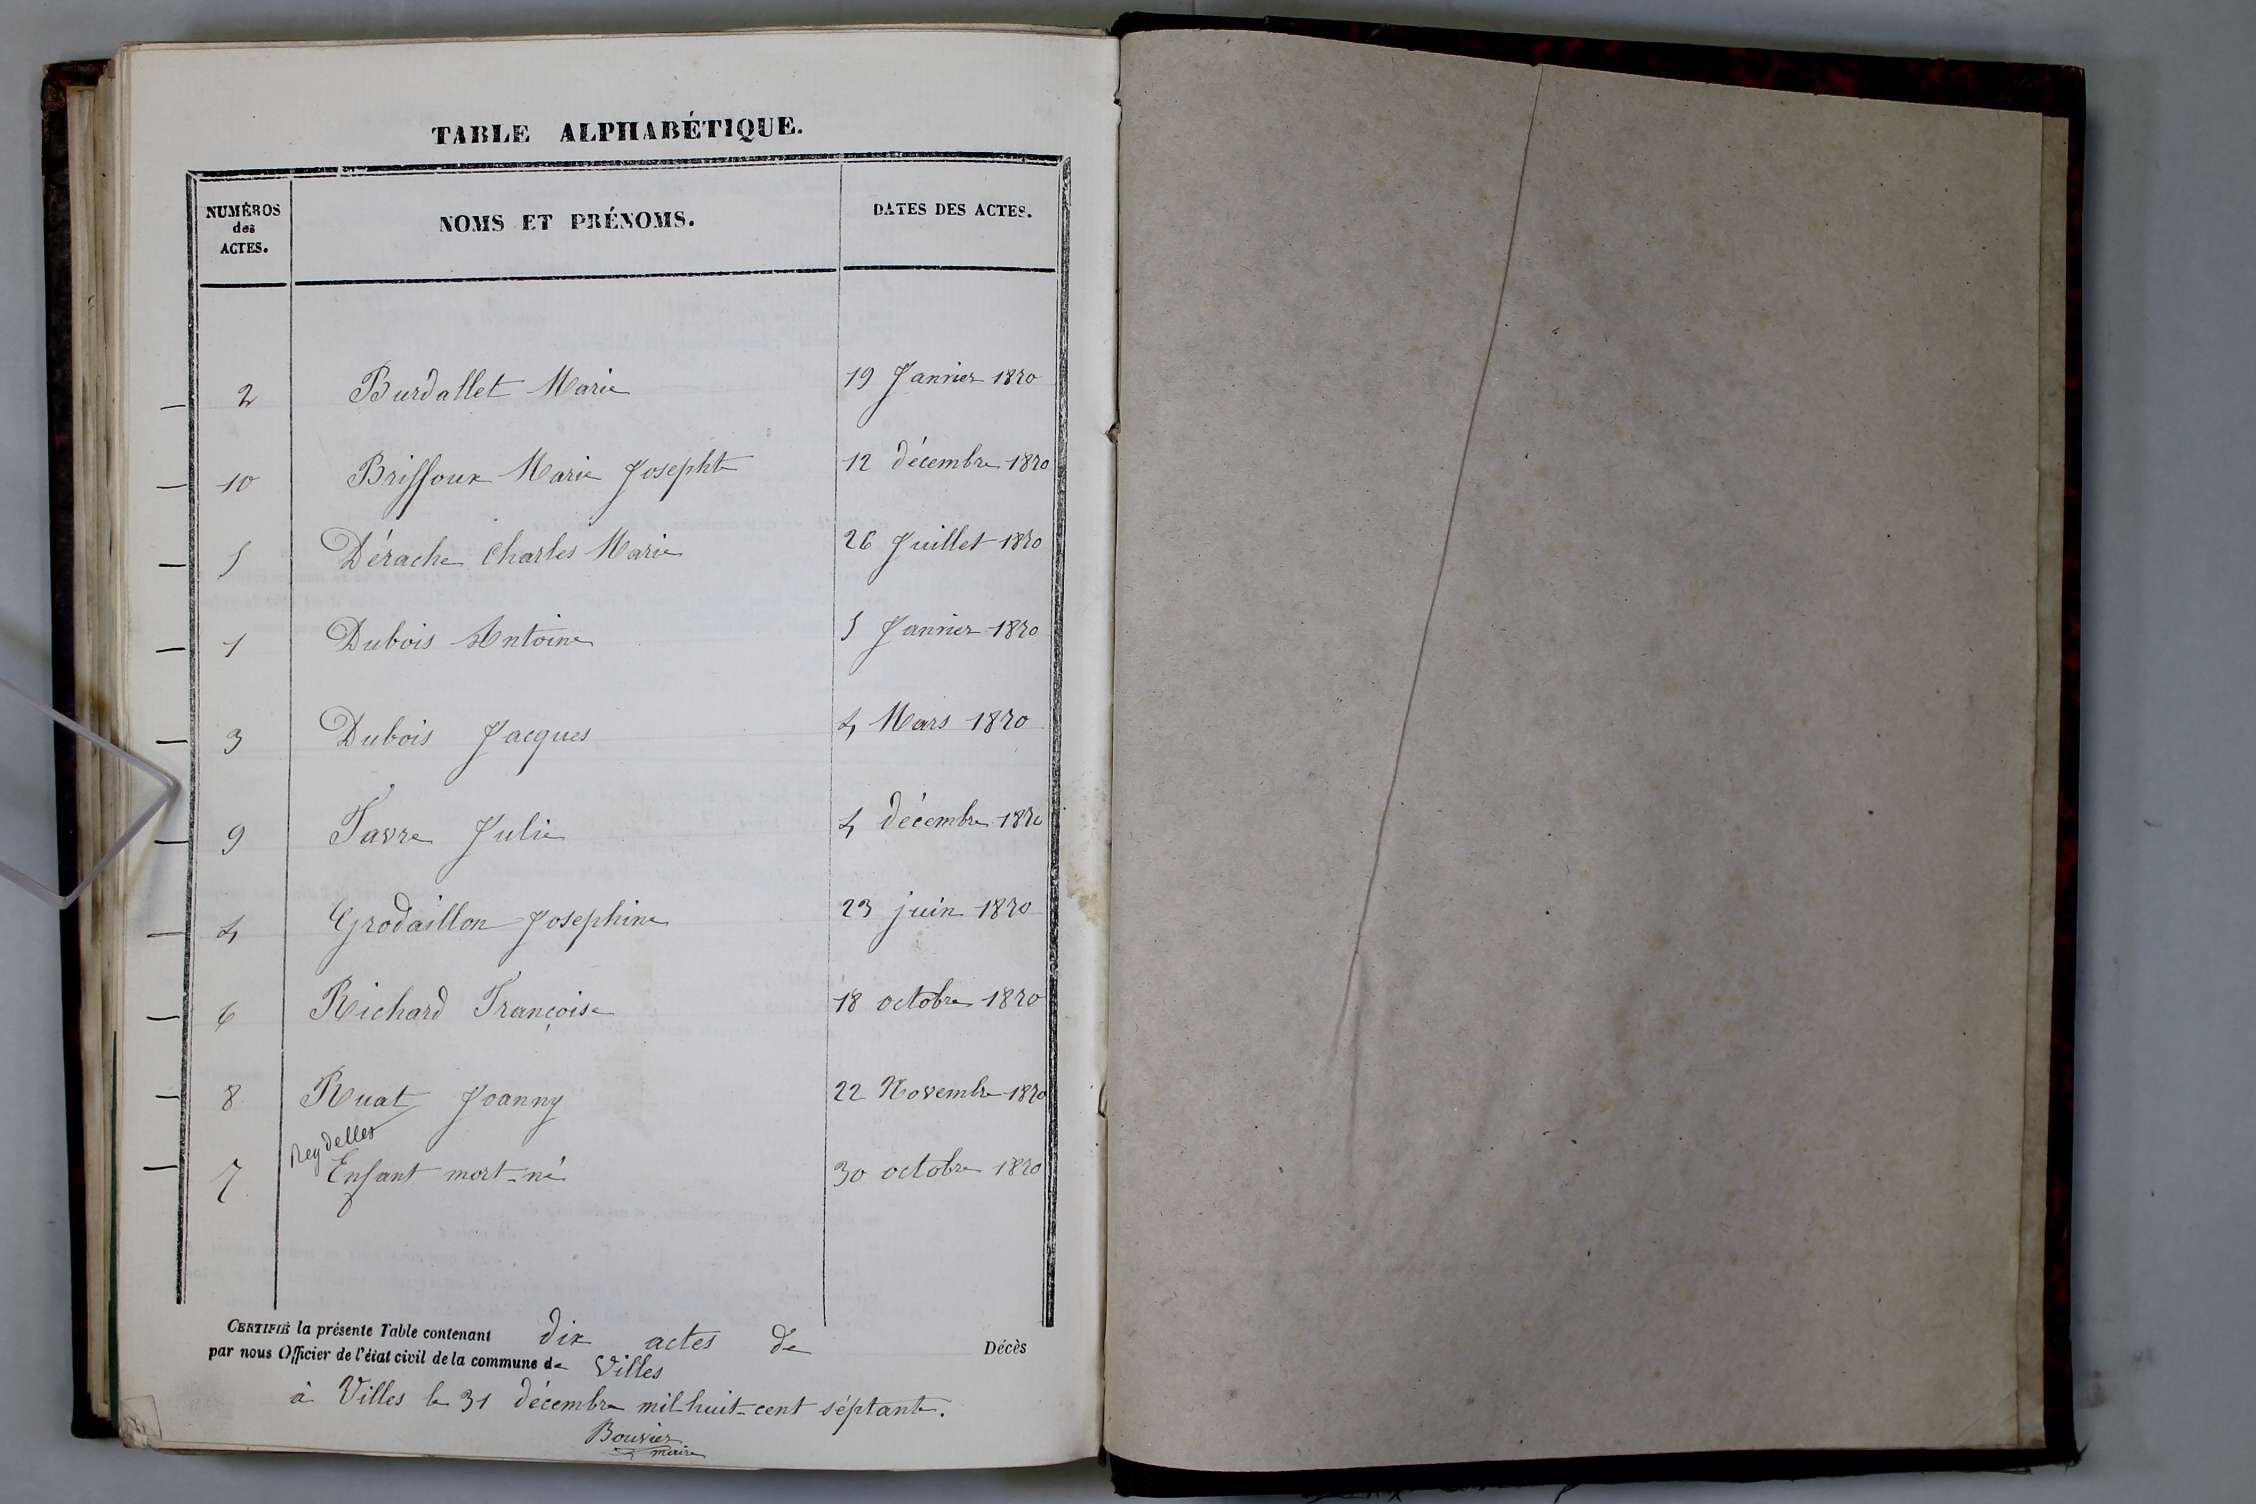 TABLE ALPHABÉTIQUE.
NUMÉROS des ACTES. NOMS ET PRÉNOMS. DATES DES ACTES.
2 Burdallet Marie 19 Janvier 1870
10 Brissoux Marie Josepht 12 décembre 1870
5 Dérache Charles Marie 26 Juillet 1870
1 Dubois Antoine 5 Janvier 1870
3 Dubois Jacques 4 Mars 1870
9 Favre Julie 4 décembre 1870
4 Grodaillon Josephine 23 juin 1870
6 Richard Françoise 18 octobre 1870
8 Ruat Joanny 22 Novembre 1870
Reydellet
7 Enfant mort-né 30 octobre 1870
CERTIFIÉ la présente Table contenant dix actes de Décès
par nous Officier de l'état civil de la commune de Villes
à Villes le 31 décembre mil-huit-cent séptante.
Bouvier
maire